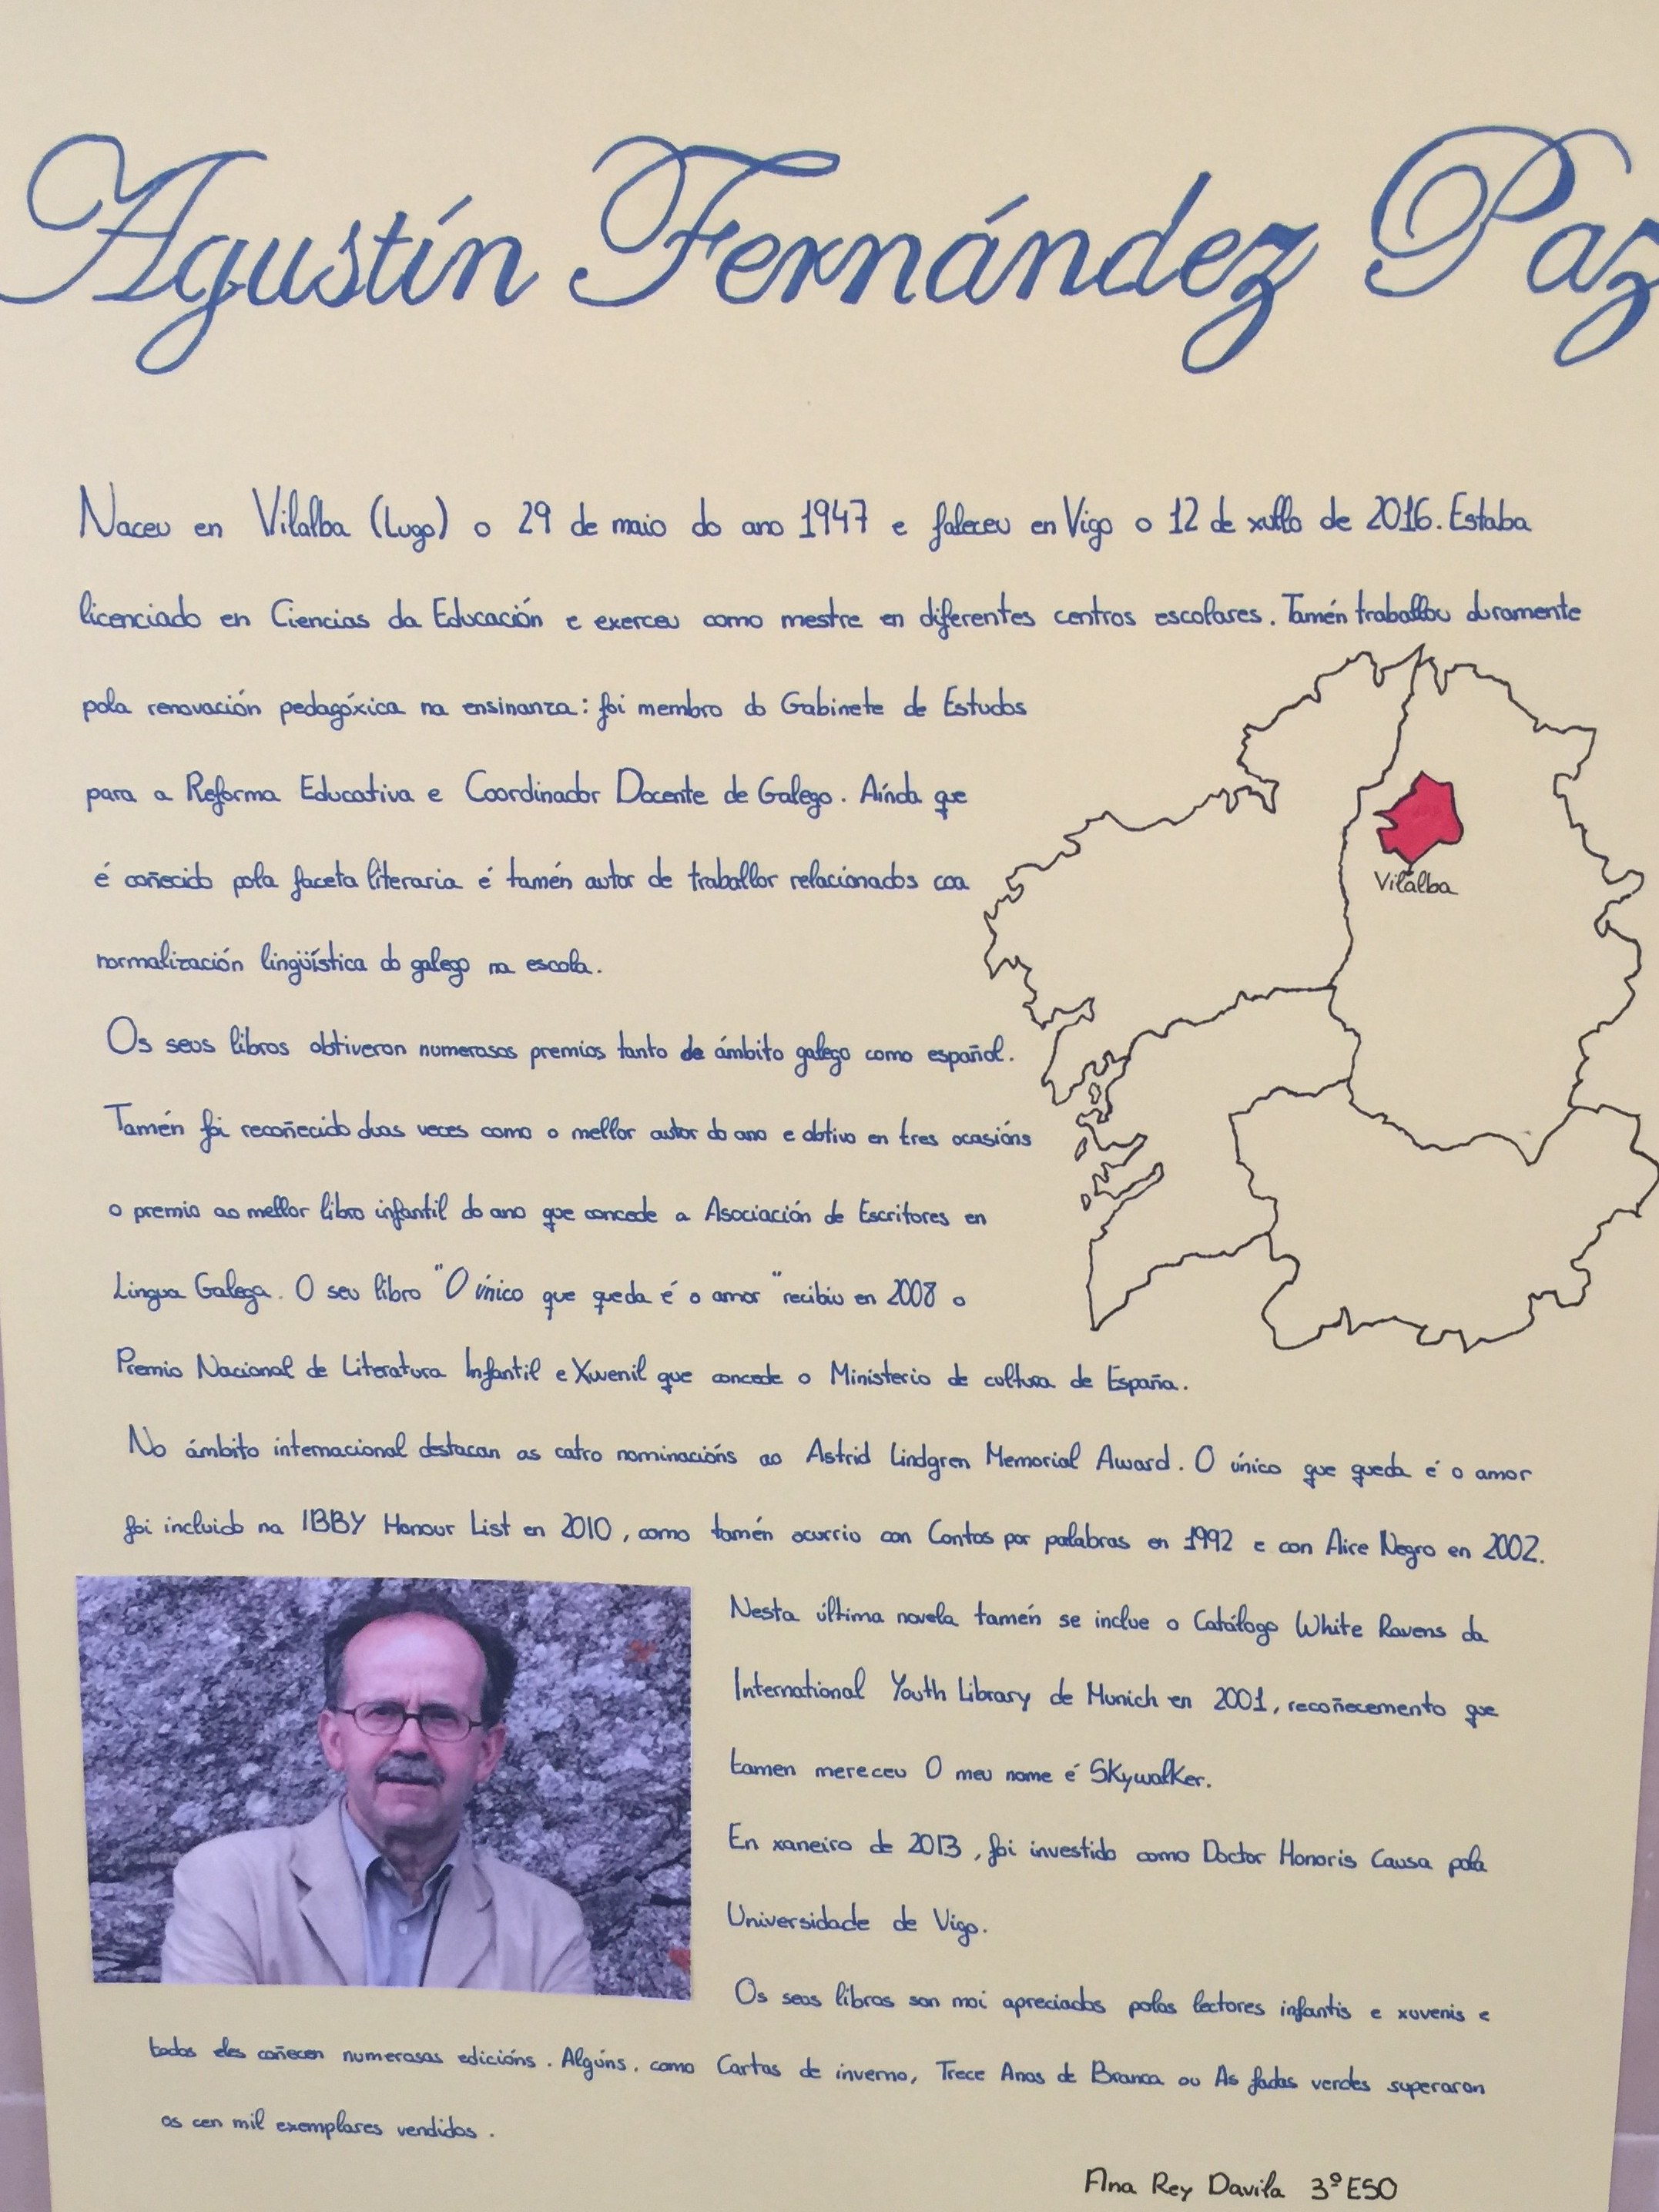 Agustín Fernández Paz
Naceu en Vilalba (Lugo) o 29 de maio do ano 1947 e faleceu en Vigo o 12 de xullo de 2016. Estaba
licenciado en Ciencias da Educación e exerceu como mestre en diferentes centros escolares. Tamén traballou duramente
pola renovación pedagóxica na ensinanza: foi membro do Gabinete de Estudos
para a Reforma Educativa e Coordinador Docente de Galego. Aínda que
é coñecido pola faceta literaria é tamén autor de traballor relacionados coa
normalización lingüística do galego na escola.
Os seus libros obtiveron numerosos premios tanto de ámbito galego como español.
Tamén foi recoñecido duas veces como o mellor autor do ano e obtivo en tres ocasións
o premio ao mellor libro infantil do ano que concede a Asociación de Escritores en
Lingua Galega. O seu libro "O único que queda é o amor" recibiu en 2008 o
Premio Nacional de Literatura Infantil e Xuvenil que concede o Ministerio de cultura de España.
No ámbito internacional destacan as catro nominacións ao Astrid Lindgren Memorial Award. O único que queda é o amor
foi incluido na IBBY Honour List en 2010, como tamén ocurrio con Contos por palabras en 1992 e con Aire Negro en 2002.
Nesta última novela tamén se inclue o Catálogo White Ravens da
International Youth Library de Munich en 2001, recoñecemento que
tamen mereceu O meu nome é Skywalker.
En xaneiro de 2013, foi investido como Doctor Honoris Causa pola
Universidade de Vigo.
Os seos libros son moi apreciados polos lectores infantis e xuvenis e
todos eles coñecen numerosas edicións. Algúns, como Cartas de inverno, Trece Anos de Branca ou As fadas verdes superaron
os cen mil exemplares vendidos.
Vilalba
Ana Rey Davila 3º ESO